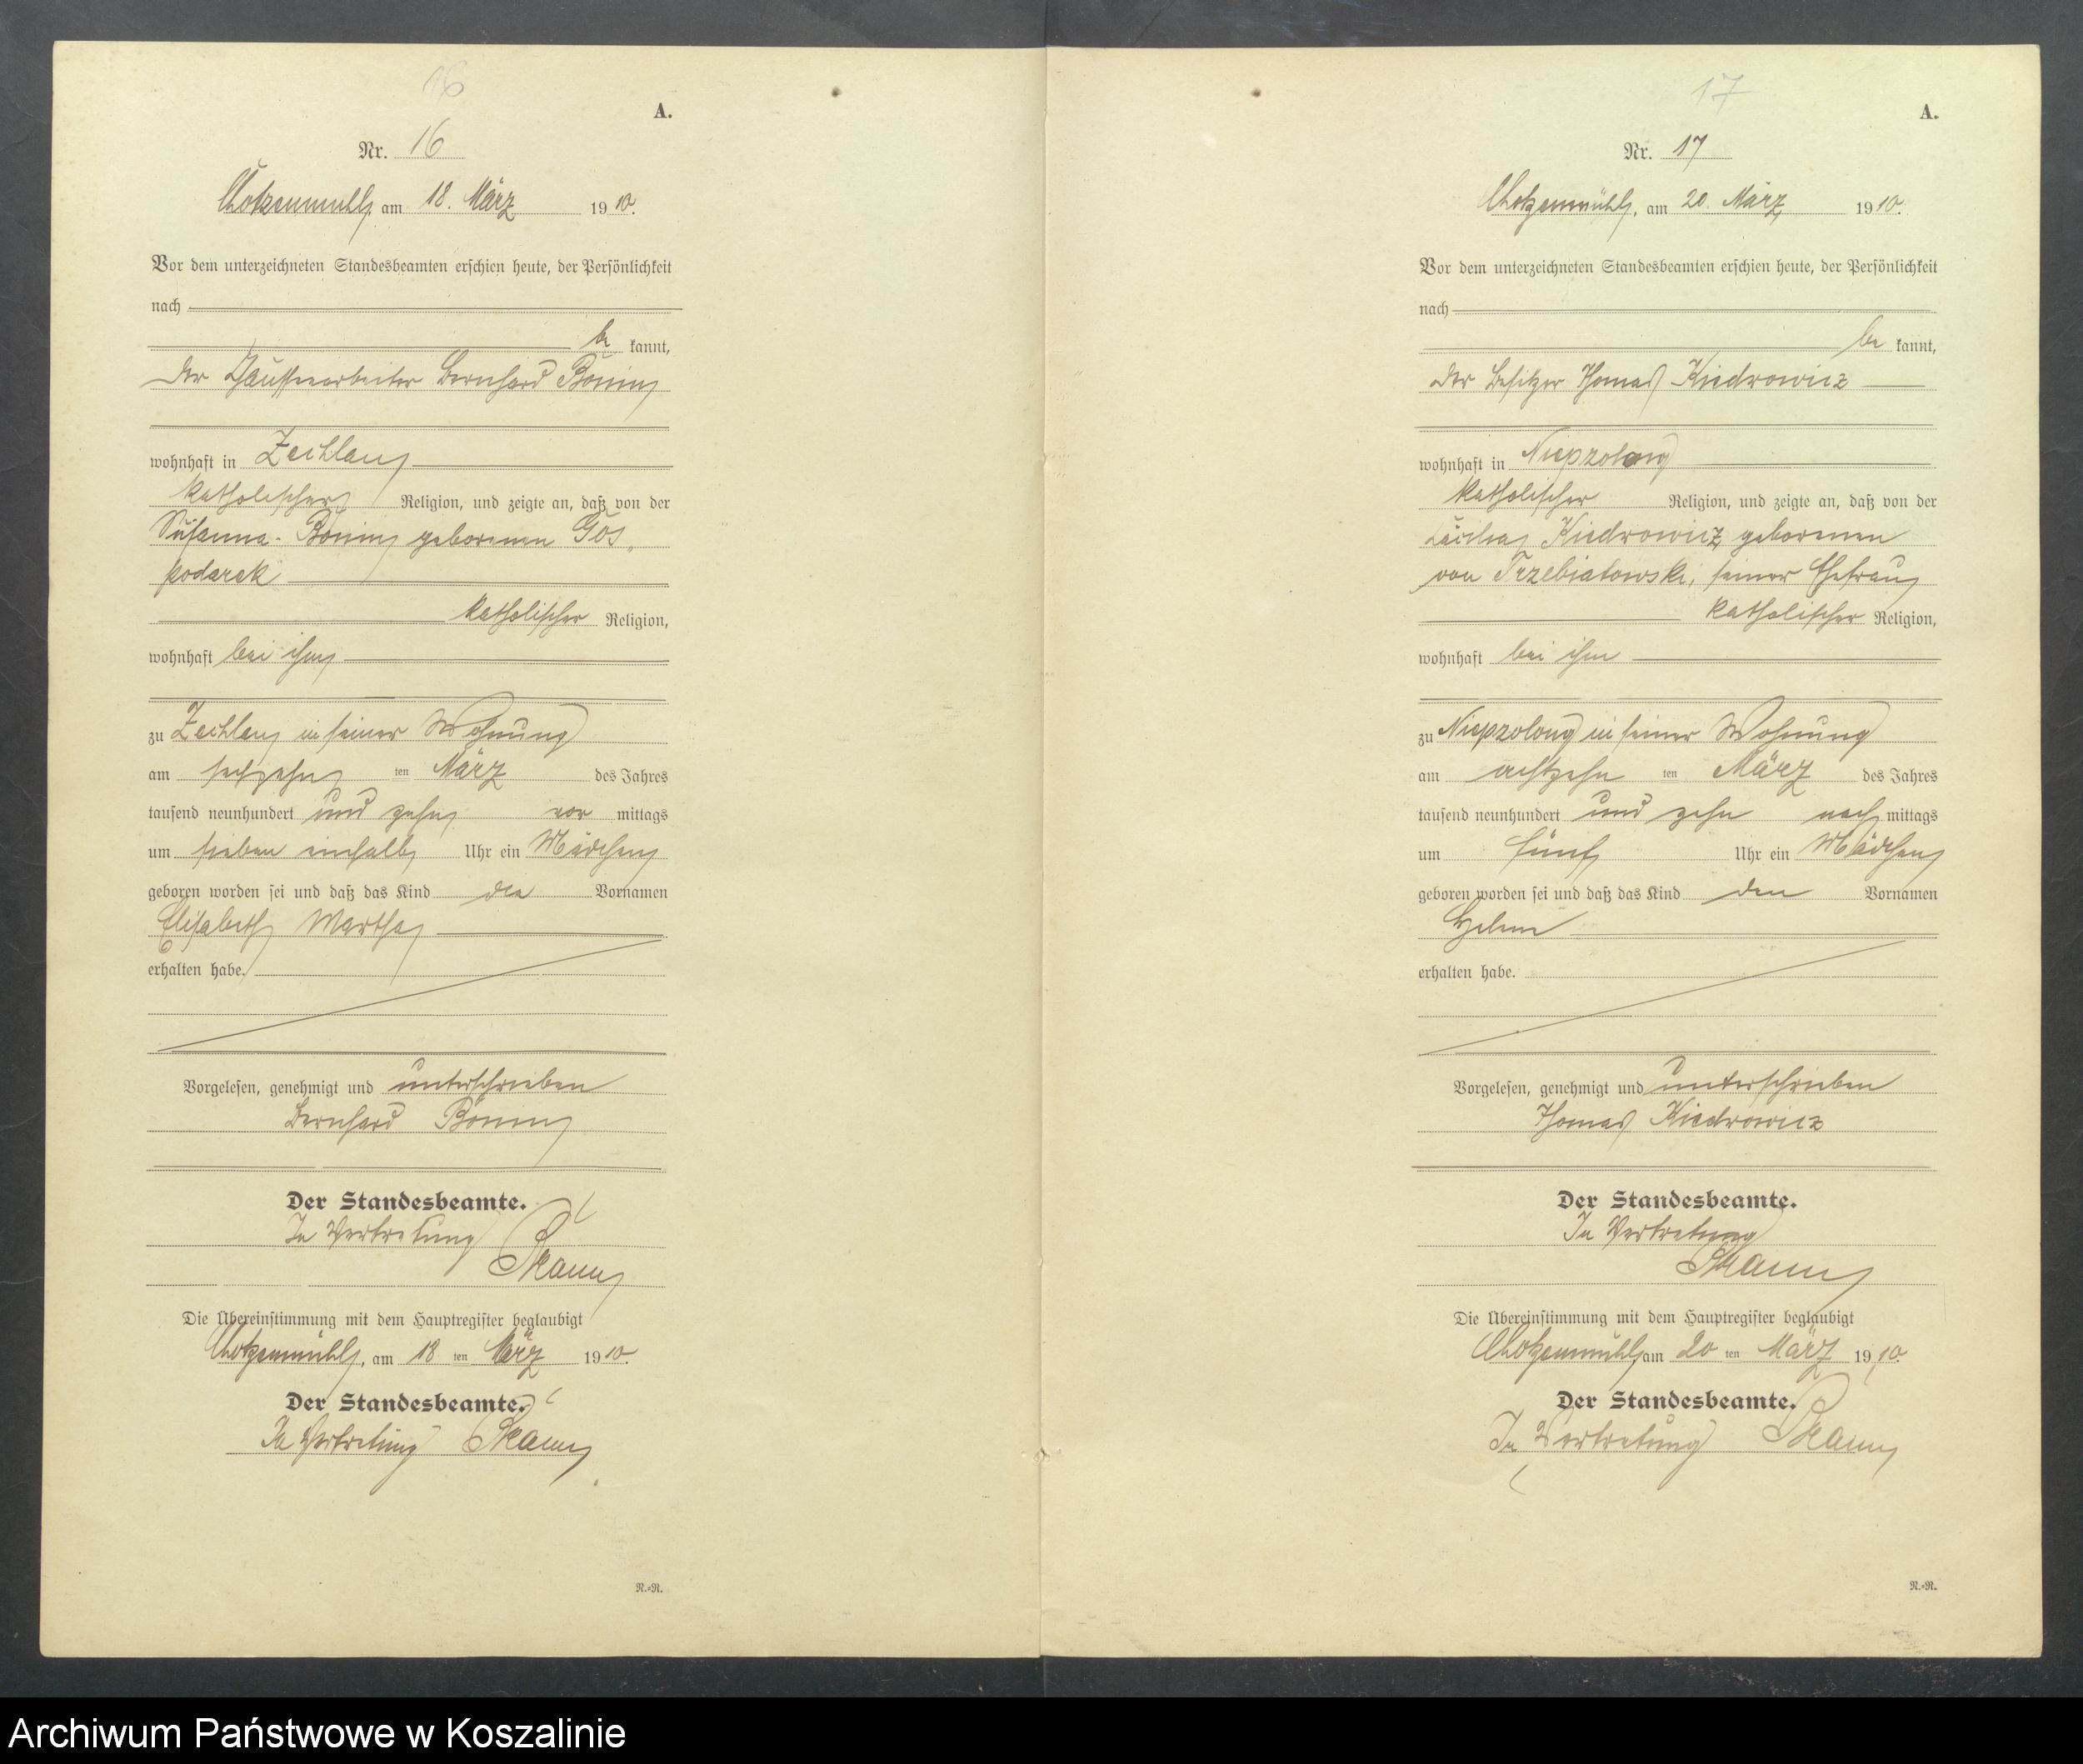 16
A.
Nr. 16
Chotzenmühl, am 18. März 1910.
Vor dem unterzeichneten Standesbeamten erschien heute, der Persönlichkeit
nach
be kannt,
der Chausseearbeiter Bernhard Böning
wohnhaft in Zechlau
katholischer Religion, und zeigte an, daß von der
Susanna Böning geborenen Gos¸
podarek
katholischer Religion,
wohnhaft bei ihm
zu Zechlau in seiner Wohnung
am sechzehn ten März des Jahres
tausend neunhundert und zehn vor mittags
um sieben einhalb Uhr ein Mädchen
geboren worden sei und daß das Kind die Vornamen
Elisabeth Martha
erhalten habe.
Vorgelesen, genehmigt und unterschrieben
Bernhard Böning
Der Standesbeamte.
In Vertretung
Die Übereinstimmung mit dem Hauptregister beglaubigt
Chotzenmühl, am 18 ten März 1910.
Der Standesbeamte.
In Vertretung
R.=R.
17
A.
Nr. 17
Chotzenmühl, am 20. März 1910.
Vor dem unterzeichneten Standesbeamten erschien heute, der Persönlichkeit
nach
be kannt,
der Besitzer Thomas Kiedrowicz
wohnhaft in Niepzolong
katholischer Religion, und zeigte an, daß von der
Kiedrowicz geborenen
von Trzebiatowski, seiner Ehefrau
katholischer Religion,
wohnhaft bei ihm
zu Niepzolong in seiner Wohnung
am achtzehn ten März des Jahres
tausend neunhundert und zehn nach mittags
um fünf Uhr ein Mädchen
geboren worden sei und daß das Kind den Vornamen
erhalten habe.
Vorgelesen, genehmigt und unterschrieben
Thomas Kiedrowicz
Der Standesbeamte.
In Vertretung
Die Übereinstimmung mit dem Hauptregister beglaubigt
Chotzenmühl, am 20 ten März 1910.
Der Standesbeamte.
In Vertretung
R.=R.
Archiwum Państwowe w Koszalinie